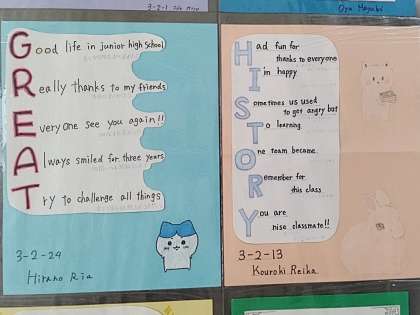 3-2-1
Oya Mayubi
GREAT
Good life in junior high school
Really thanks to my friends
Everyone see you again!!
Always smiled for three years
Try to challenge all things
3-2-24
Hirano Ria
HISTORY
Had fun for
thanks to everyone
In happy
Sometimes us used
to get angry but
To learning.
One team became.
Remember for
this class
You are
nise classmate!!
3-2-13
Kouroki Reika